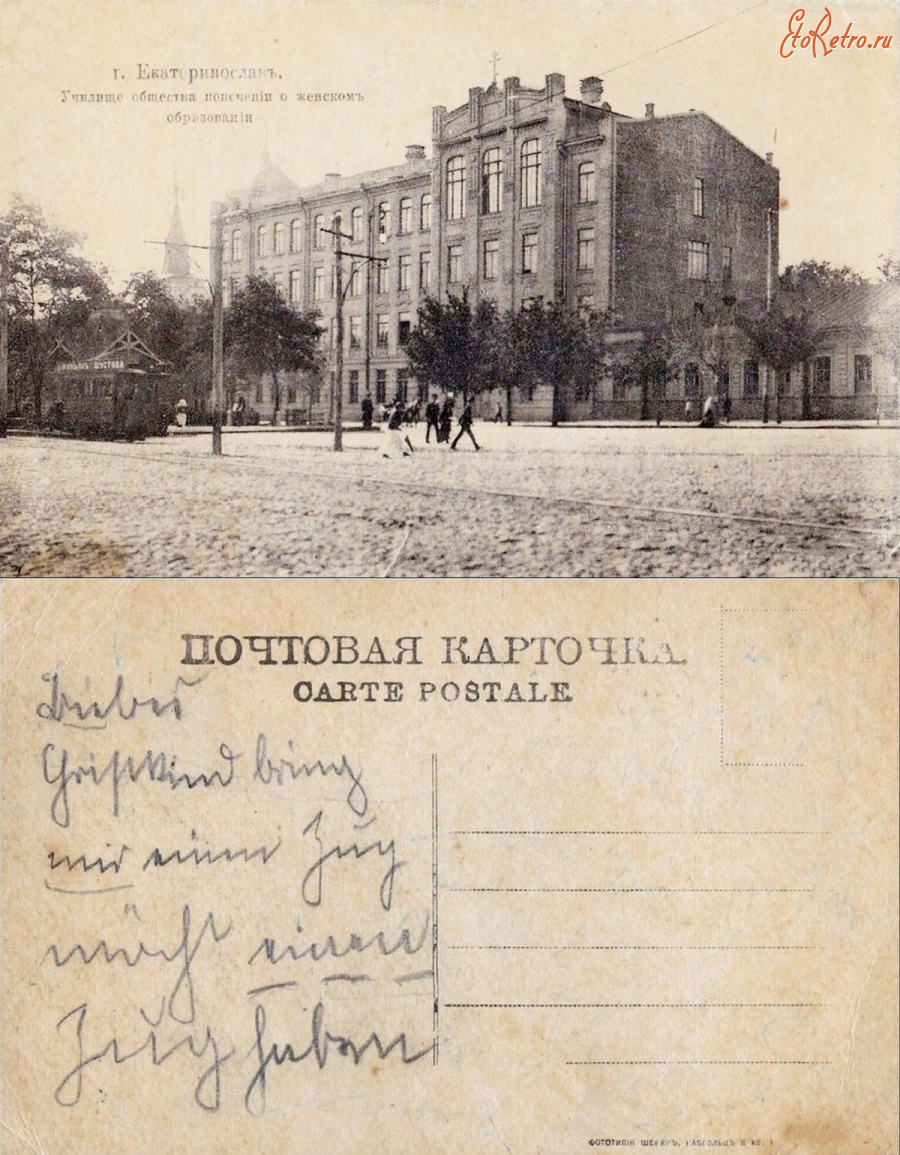 EtoRetro.ru
г. Екатеринославъ.
Училище общества попеченіи о женскомъ
образованіи
ШУСТОВА
ПОЧТОВАЯ КАРТОЧКА.
CARTE POSTALE.
Liebes
Cristkind bring
mir einen Zug
möcht einen
Zug haben
ФОТОТИПІЯ ШЕРЕРЪ, НАБГОЛЬЦЪ И КО.